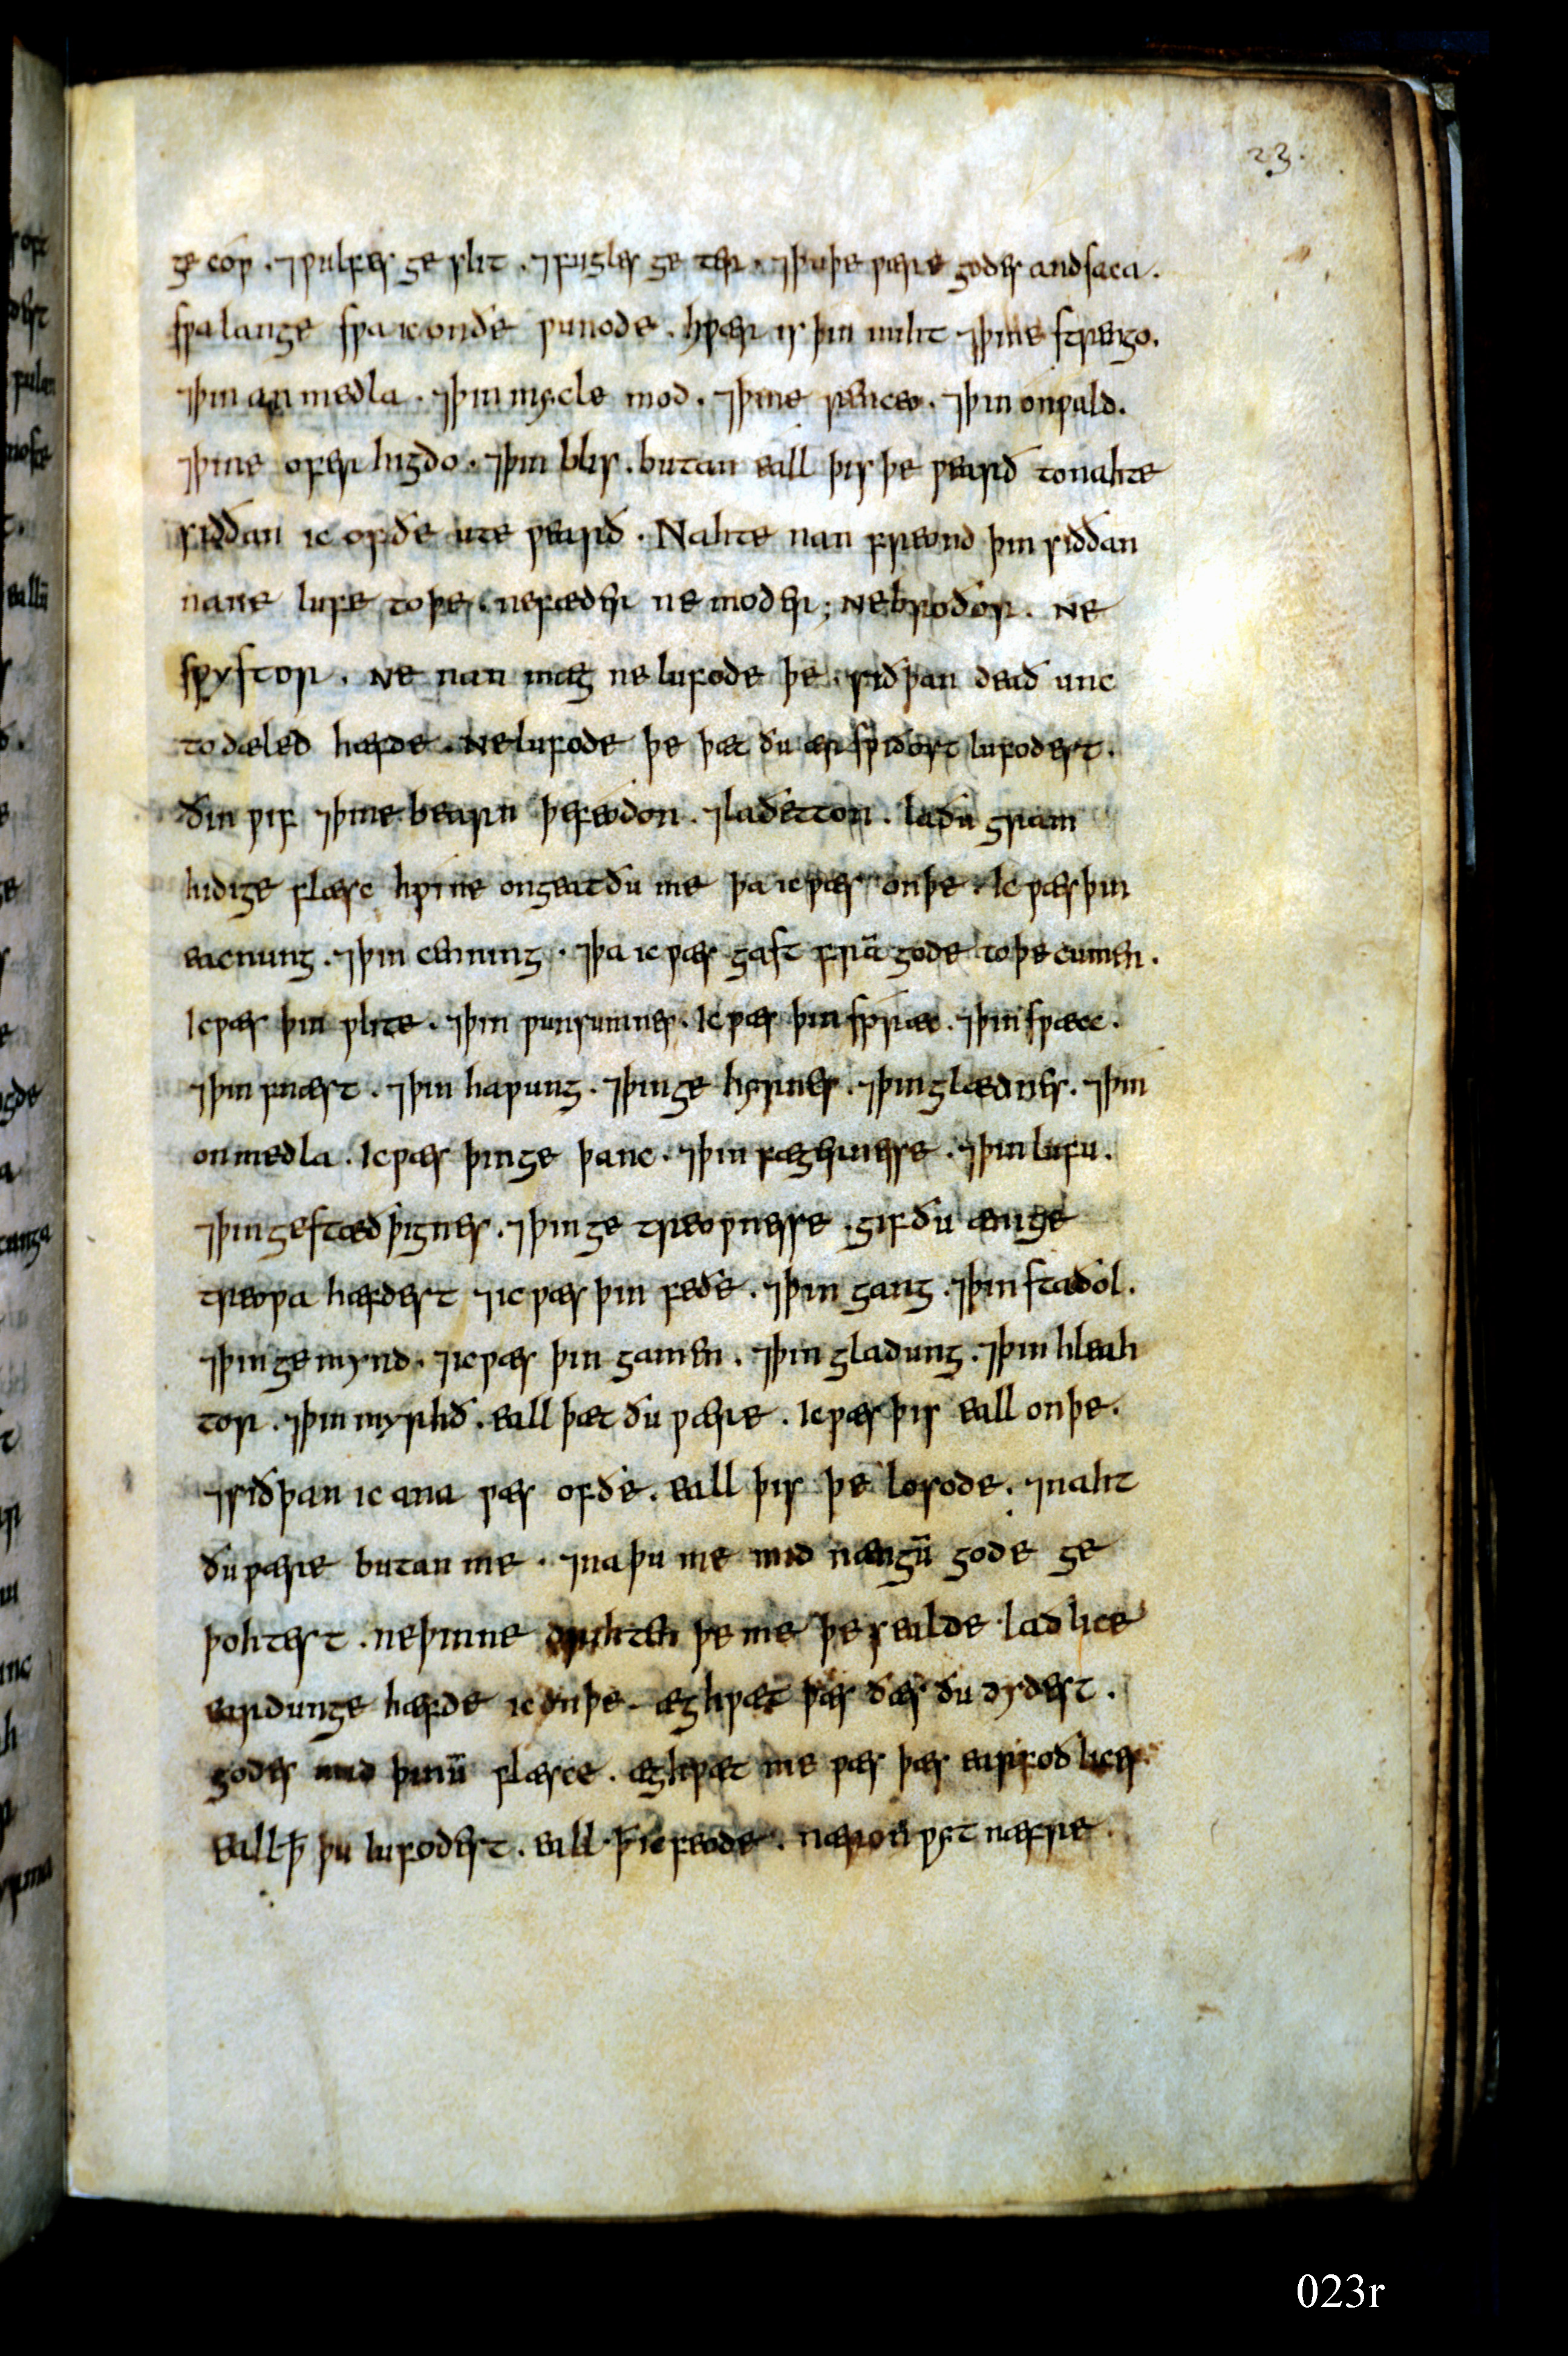 23.
ge cop . ⁊ ƿulfes ge slit . ⁊ fugles ge ter . ⁊ þu þe ƿære godes andsaca .
sƿa lange sƿa ic on ðe ƿunode . hƿær is þin miht ⁊ þine strengo .
⁊ þin an medla . ⁊ þin mycle mod . ⁊ þine renceo . ⁊ þin onƿald .
⁊ þine ofer higdo . ⁊ þin blis . butan eall þis þe ƿearð to nahte
siððan ic of ðe ute ƿearð . Nahte nan freond þin siððan
nane lufe to þe . ne fæder ne moder ; Ne broðor . Ne
sƿystor . Ne nan mæg ne lufode þe . siðþan deað unc
todæled hæfde . Ne lufode þe þæt ðu ær sƿiðost lufodest .
ðin ƿif ⁊ þine bearn þe feodon . ⁊ laðetton . la ðu gram
hidige flæsc hƿi ne ongeat ðu me þa ic ƿæs on þe . Ic ƿæs þin
eacnung . ⁊ þin cenning . ⁊ þa ic ƿæs gast frā gode to þe cumen .
Ic ƿæs þin ƿlite . ⁊ þin ƿunsumnes . Ic ƿæs þin spræc . ⁊ þin sƿæcc .
⁊ þin fnæst . ⁊ þin haƿung . ⁊ þin ge hyrnes . ⁊ þin glædnes . ⁊ þin
onmedla . Ic ƿæs þin ge þanc . ⁊ þin fægernesse . ⁊ þin lufu .
⁊ þin gestæd þignes . ⁊ þin ge treoƿnesse . gif ðu ænige
treoƿa hæfdest ⁊ ic ƿæs þin feðe . ⁊ þin gang . ⁊ þin staðol .
⁊ þin ge mynd . ⁊ ic ƿæs þin gamen . ⁊ þin gladung . ⁊ þin hleah
tor . ⁊ þin myrhð . eall þæt ðu ƿære . Ic ƿæs þis eall on þe .
⁊ siðþan ic ana ƿæs of ðe . eall þis þe losode . ⁊ naht
ðu ƿære butan me . ⁊ na þu me mid nængū gode ge
þohtest . ne þinne drihten þe me þe sealde . laðlice
eardunge hæfde ic on þe . æghƿæt þæs ðæs ðu dydest .
godes mid þinū flæsce . æghƿæt me ƿæs þæs earfoðlices
eall ꝥ þu lufodest . eall ꝥ ic feode . næron ƿyt næfre
023r